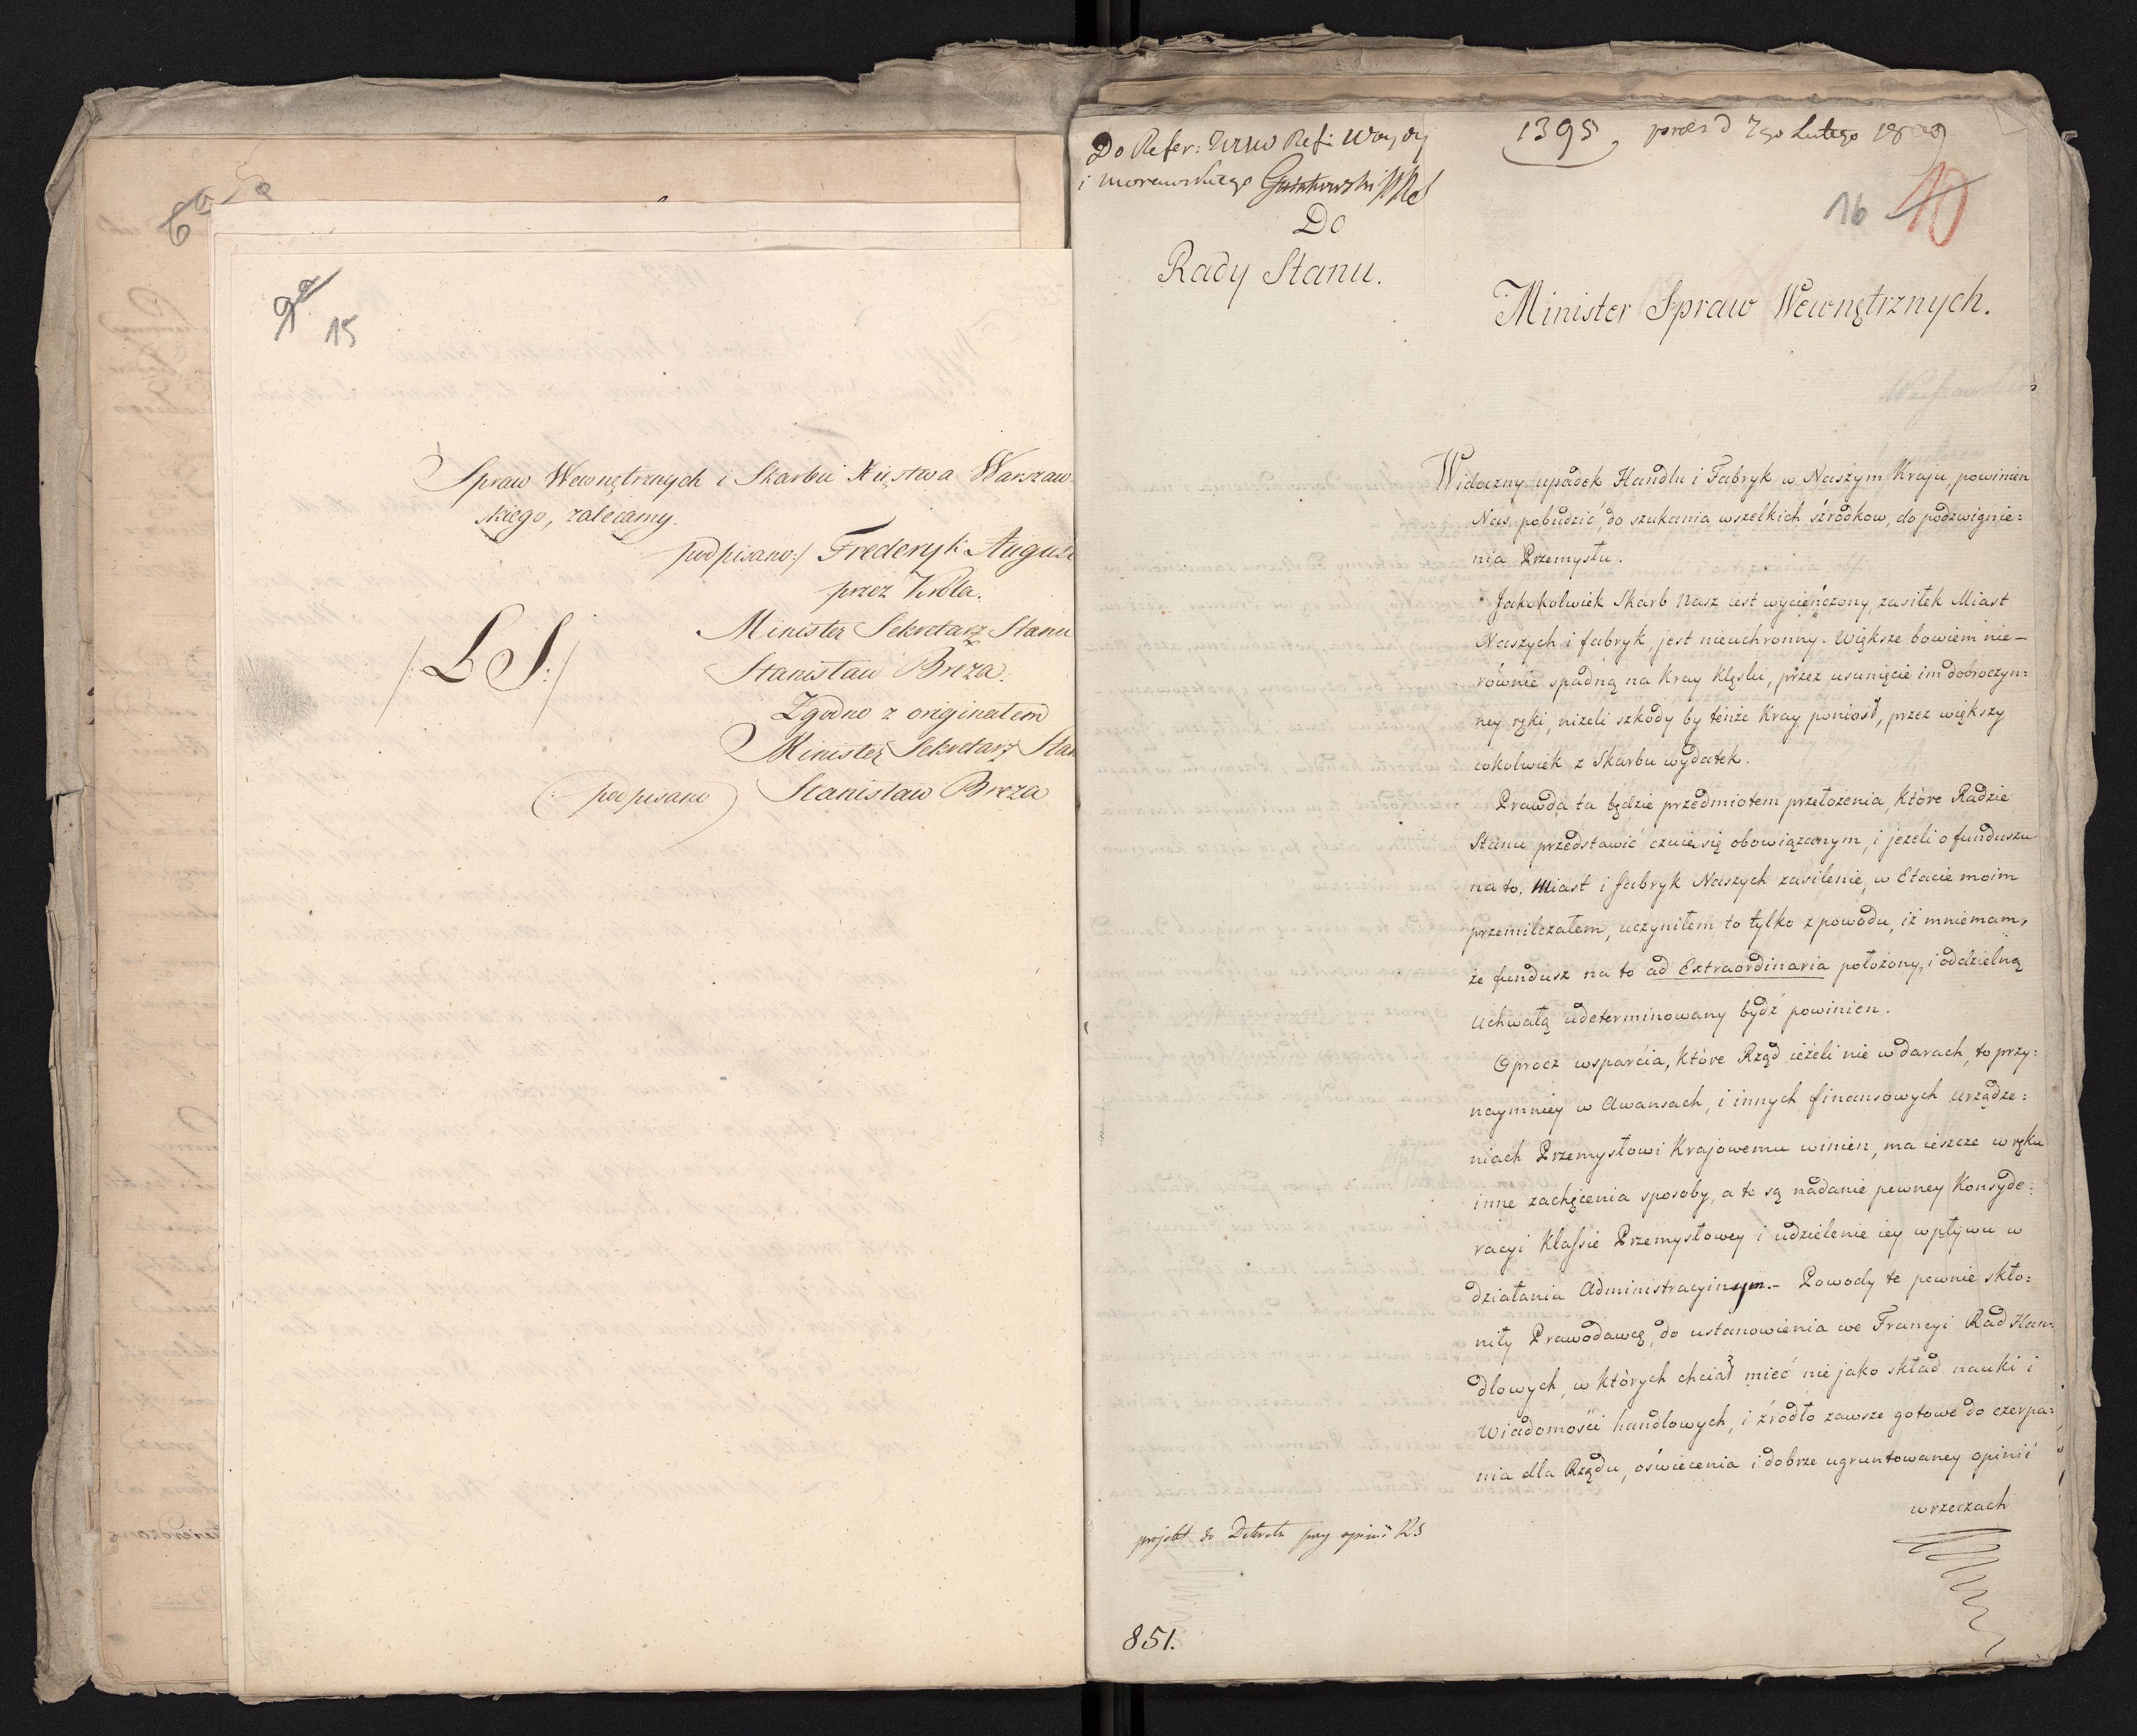 9a
15
Spraw Wewnętrznych i Skarbu Xięstwa Warszaw
skiego, zalecamy.
podpisano:/ Frederyk August
przez Króla.
Minister Sekretarz Stanu
/:L S:/
Stanisław Breza.
Zgodno z originałem
Minister Sekretarz Stan
(podpisano) Stanisław Breza
6a
Do Refer:
i Morawskiego
1395, prees d 7go Lutego 1809
16 10
Do
Rady Stanu.
Minister Spraw Wewnętrznych.
Widoczny upadek Handlu i Fabryk w Naszym Kraju, powinien
Nas, pobudzić, do szukania wszelkich śzrodkow, do podzwignie:
nia Przemysłu.
Jakokolwiek Skarb Nasz iest wycieńczony, zasiłek Miast
Naszych i fabryk, jest nieuchronny. Większe bowiem nie-
równie spadną na Kray Klęski, przez usunięcie im dobroczyn:
ney ręki, niżeli szkody by tenże Kray poniosł, przez większy
cokolwiek z Skarbu wydatek.
Prawda ta będzie przedmiotem przełożenia, które Radzie
Stanu przedstawić czuię się obowiązanym, i jeżeli o funduszu
na to, Miast i fabryk Naszych zasilenie, w Etacie moim
przemilczałem, uczyniłem to tylko z powodu, iż mniemam,
że fundusz na to ad Extraordinaria położony, i oddzielną
Uchwałą udeterminowany bydź powinien.
Oprocz wsparcia, które Rząd ieżeli nie w darach, to przy:
naymniey w Awansach, i innych finansowych urządze:
niach Przemysłowi Krajowemu winien, ma ieszcze w ręku
inne zachęcenia sposoby, a to są nadanie pewney Konsyde:
racyi Klassie Przemysłowey i udzielenie iey wpływu w
działania Administracyinym.- Powody te pewnie skło:
niły Prawodawcę, do ustanowienia we Francyi Rad Han:
dlowych, w których chciał mieć nie jako skład nauki i
wiadomości handlowych, i źrodło zawsze gotowe do czerpa:
nia dla Rządu, oświecenia i dobrze ugruntowaney opinii
w rzeczach
projekt do Dekretu przy opinii RS
851.